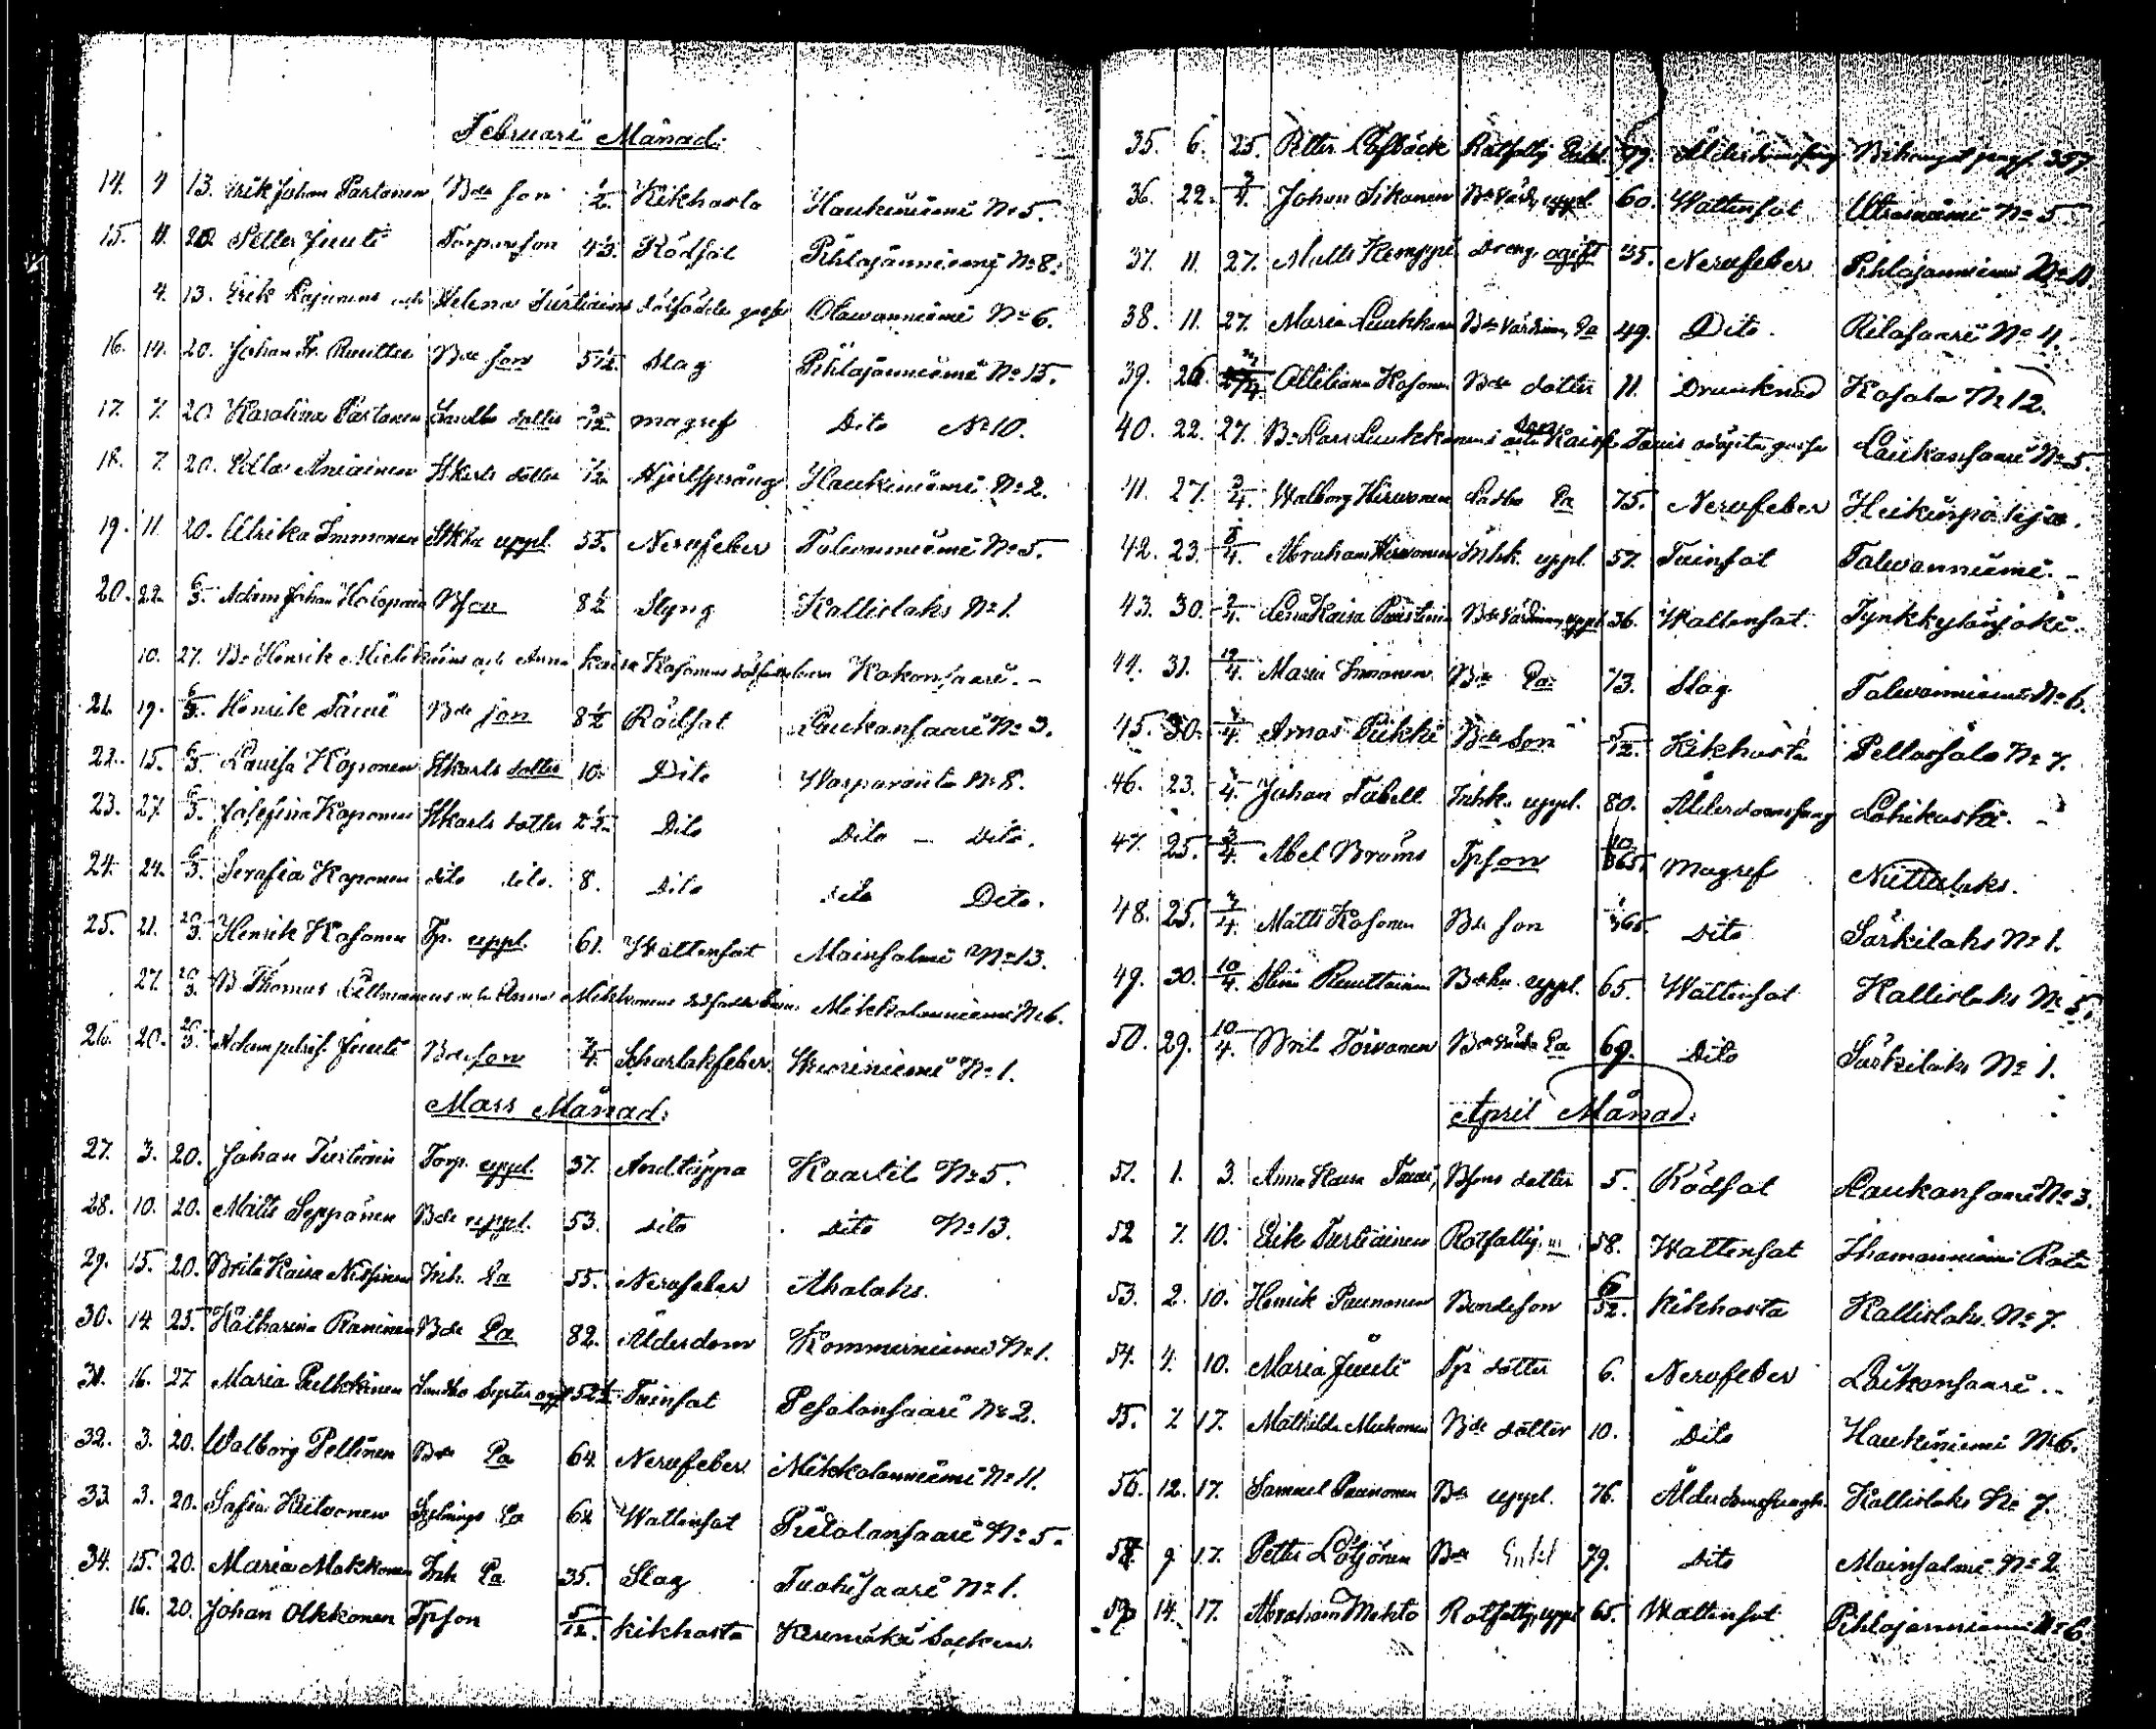 Februari Månad:
14. 4 13. Erik Johan Partanen Bde son 1/2 Kikhosta Haukiniemi No 5.
15. 11. 20. Petter Juuti Torpareson 4 1/2. Rödsot Pihlajanniemi No 8.
4. 13. Erik Kajanens och Helena Turtiains dödfödde gosse Olawanniemi No 6.
16. 14. 20. Johan Fr. Ruutta Bde son 5 1/2. Slag Pihlajanniemi No 15.
17. 7. 20 Karolina Partanen dotter magref Dito No 10.
18. 7. 20. Ulla Aniainen Skarls dotter 1/12 Hjertsprång Haukiniemi No 2.
19. 11 20. Ulrika Immonen uppl. 55. Nervfeber Talwanniemi No 5.
20. 22. 6/3. Adam Johan Holopain Bson 8 1/2 Styng Kallislaks No 1.
10. 27. Bo Henrik och Anna Kaisa Kosonens Kokonsaari. -
21. 19. 6/3. Henrik Tauri Bde son 8 1/2 Rödsot Laukansaari No 3.
22. 15. 6/3. Lovisa Koponen Skarls dotter 10. Dito Wasparanta No 8.
23. 27. 6/3. Josefina Koponen Skarls dotter 2 1/2. Dito Dito - Dito.
24. 24. 6/3. Serafia Koponen dito dito. 8. Dito dito Dito.
25. 21. 20/3. Henrik Kosonen Tp. uppl. 61. Wattensot Moinsalmi No 13.
27. 20/3. B Thomas och Anna Mikkonens Mikkolanniemi No 6.
26. 20. 20/3. Adam Juuti Bde son 3/4. Scharlakfeber. Wuoriniemi No 1.
Mars Månad:
27. 3. 20. Johan Turtiain Torp. uppl. 37. Andtäppa Kaartil No 5.
28. 10. 20. Matts Seppänen Bde uppl. 53. dito dito No 13.
29. 15. 20. Brita Kaisa Nissinen Inh. Ea 55. Nervfeber Ahalaks.
30. 14 25. Katharina Raninen Bde Ea 82. Ålderdom Kommerniemi No 1.
31. 16. 27 Maria Pulkkinen 52 1/2 Tvinsot Pesolansaari No 2.
32. 3. 20. Walborg Pellinen Bde Ea 64 Nervfeber. Mikkolanniemi No 11.
33 3. 20. Sofia Hitvonen Ea 62 Wattensot Pietolansaari No 5.
34. 15. 20. Maria Makkonen Inh Ea 35. Slag Tuohisaari No 1.
16. 20. Johan Olkkonen Tpson 5/12. Kikhosta Kerimäki Socken.
35. 6. 25. Petter Låfbäck Rotfattig Enkl. 79. Ålderdomsswag 357
36. 22. 3/4. Johan Sikanen uppl. 60. Wattensot Utrasniemi No 5.
37. 11. 27. Matts Kemppi Dreng, ogift 35. Nervfeber Pihlajanniemi No 11.
38. 11. 27. Maria Luukkanen Bde Värdinna, Ea 49. Dito. Ritosaari No 4.
39. 26. Ottiliana Kosonen Bde dotter 11. Drunknad Kosola No 12.
40. 22. 27. Bo Lars Luukkanens och Kaisa Tauis odöpta gosse Laukansaari No 5.
41. 27. 3/4. Walborg Hirwonen Ea 75. Nervfeber Heikinpohja.
42. 23. 3/4. Abraham Hirwonen Inhk. uppl. 57. Tvinsot Talwanniemi. -
43. 30. 2/4. Lena Kaisa Puustinen Bde Värdinna, uppl 36. Wattensot. Tynkkylänjoki.
44. 31. 19/4. Maria Immonen Bde Ea 73. Slag Talwanniemi No 6.
45. 30. 4. Amos Piikki Bde Son 5/12. Kikhosta Pellossalo No 7.
46. 23. 4. Johan Tabell Inhk. uppl. 80. Ålderdomsswag Lohikoski. -
47. 25. 3/4. Abel Broms Tpson 10/365. Magref Niittulaks.
48. 25. 3/4. Matts Kosonen Bde son 365. Dito Särkilaks No 1.
49. 30. 10/4. Stina Ruuttainen uppl. 65. Wattensot Kallislaks No 5.
50. 29. 10/4. Brita Toivanen Ea 69. Dito Särkilaks No 1.
April Månad:
51. 1. 3. Anna Kaisa Tauri, Bsons dotter 5. Rödsot Laukansaari No 3.
52 7. 10. Erik Turtiainen Rotfattig. 58. Wattensot Ihamaniemi Rote
53. 2. 10. Henrik Paunonen Bondeson 6/52. Kikhosta Kallislaks No 7.
54. 4. 10. Maria Juuti Tp dotter 6. Nervfeber Laukansaari..
55. 7. 17. Mathilda Muhonen Bde dotter 10. Dito Haukiniemi No 6.
56. 12. 17. Samuel Paunonen Bde uppl. 76. Ålderdomsswagh. Kallislaks No 7.
58. 9 17. Petter Lötjönen Bde Enkl 79. Dito Moinsalmi No 2.
59 14. 17. Abraham Mehto Rotfattig, uppl 65. Wattensot Pihlajanniemi No 6.